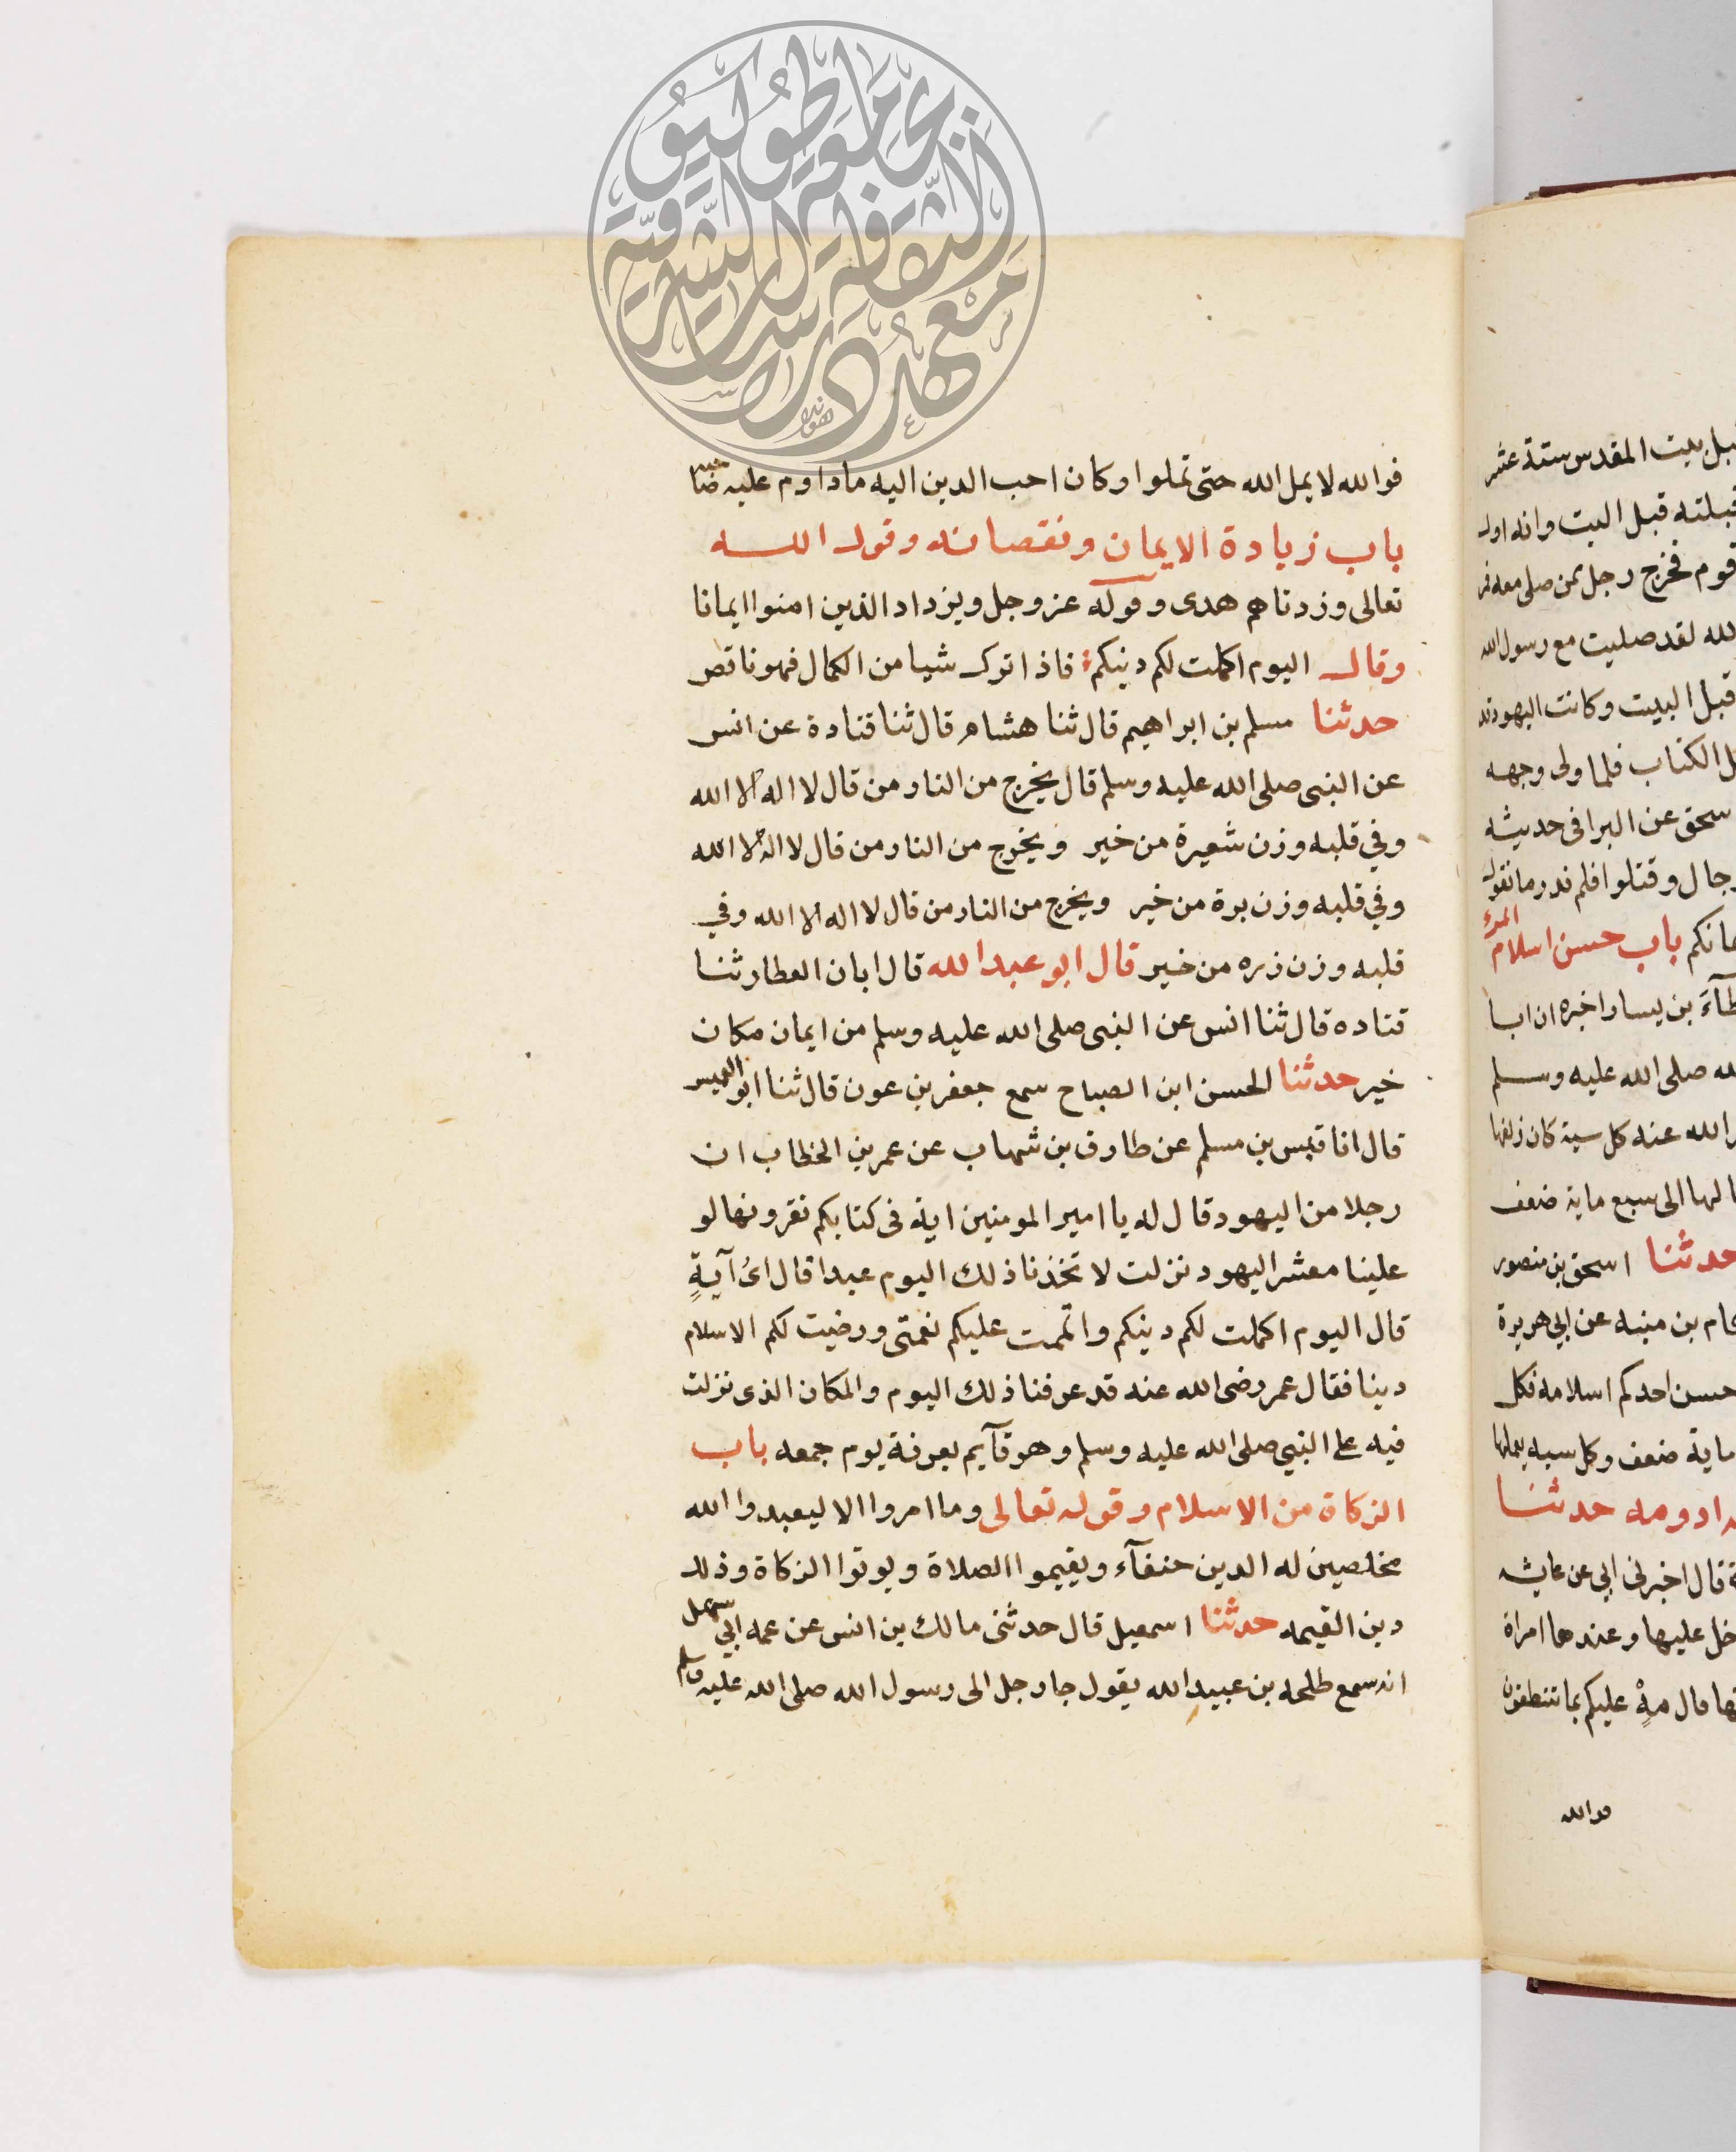 فوالله لا يمل الله حتى تملوا وكان احب الدين اليه ما داوم عليه
باب زيادة الايمان ونقصانه وقول الله
تعالى وزدناهم هدى وقوله عز وجل ويزداد الذين امنوا ايمانا
وقال اليوم اكملت لكم دينكم فاذا ترك شيا من الكمال فهو ناقص
حدثنا مسلم بن ابراهيم قال ثنا هشام قال ثنا قتادة عن انس
عن النبى صلى الله عليه وسلم قال يخرج من النار من قال لا اله الا الله
وفي قلبه وزن شعيرة من خير ويخرج من النار من قال لا اله الا الله
وفي قلبه وزن برة من خير ويخرج من النار من قال لا اله الا الله وفي
قلبه وزن ذره من خير قال ابو عبد الله قال ابان العطار ثنا
قتاده قال ثنا انس عن النبى صلى الله عليه وسلم من ايمان مكان
خير حدثنا الحسن ابن الصباح سمع جعفر بن عون قال ثنا ابو العميس
قال انا قيس بن مسلم عن طارق بن شهاب عن عمر بن الخطاب ان
رجلا من اليهود قال له يا امير المومنين اية فى كتابكم تقرونها لو
علينا معشر اليهود نزلت لاتخذنا ذلك اليوم عيدا قال اى آية
قال اليوم اكملت لكم دينكم واتممت عليكم نعمتى ورضيت لكم الاسلام
دينا فقال عمر رضى الله عنه قد عرفنا ذلك اليوم والمكان الذى نزلت
فيه على النبي صلى الله عليه وسلم وهو قآيم بعرفة يوم جمعه باب
الزكاة من الاسلام وقوله تعالى وما امروا الا ليعبدوا الله
مخلصين له الدين حنفآء ويقيموا الصلاة ويوتوا الزكاة وذلك
دين القيمه حدثنا اسمعيل قال حدثنى مالك بن انس عن عمه ابي سهيل
انه سمع طلحه بن عبيد الله يقول جا رجل الى رسول الله صلى الله عليه وسلم
قبل بيت المقدس ستة عشر
قبلته قبل البيت وانه اول
قوم فخرج رجل ممن صلى معه
لله لقد صليت مع رسول الله
قبل البيت وكانت اليهود
الكتاب فلما ولى وجهه
سحق عن البرا فى حديثه
رجال وقتلوا فلم ندر ما نقول
مانكم باب حسن اسلام المرء
طآء بن يسار اخبره ان ابا
لله صلى الله عليه وسلم
الله عنه كل سية كان زلفها
لها الى سبع ماية ضعف
حدثنا اسحق بن منصور
مام بن منبه عن ابي هريرة
حسن احدكم اسلامه فكل
ماية ضعف وكل سيه يعملها
ادومه حدثنا
قال اخبرنى ابي عن عايشه
خل عليها وعندها امراة
قال مه عليكم بما تطيقون
فوالله
معهد دراسات الثقافة الشرقية بجامعة طوكيو